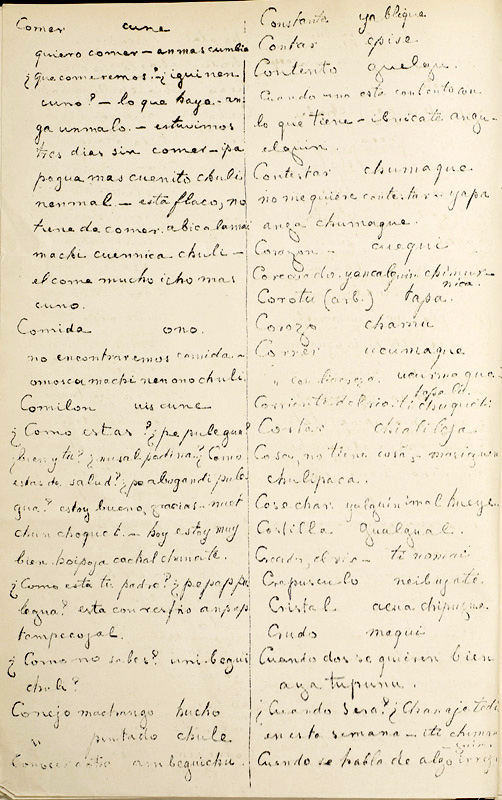 Comer cune
quiero comer - anmascumbia
¿que comeremos? ¿iguinen
cuno? - lo que haya - an
ga unmalo. - estuvimos
tres dias sin comer - pa
pagua mas cuenito chuli
nenmal. - está flaco, no
tiene de comer. abicalamai
machi cuennica chuli -
el come mucho icho mas
cuno.
Comida ono.
no encontraremos comida. a
omosca machi nenono chuli.
Comilon uis cune
¿Como estas? ¿pe pulegua?
¿bien y tu? ¿musal padina? ¿Como
estas de salud? ¿poabogandi pule
gua? estoy bueno, gracias - muet
chun choguet. - hoy estoy muy
bien. hoipoja cachal chuncite.
¿Como está tu padre? ¿pepappu
legua? esta con resfrio anpap
tampecojal.
¿Como no sabes? uni. begui
chuli?
Conejo machango hucho
" pintado chule
Conocer a otro ambeguichu.
Constante ya bligue
Contar epise
Contento quelgu.
Cuando uno esta contento con
lo que tiene - ibnicate angu
elgun.
Contestar chumaque.
no me quiere contestar - yapa
anga chumaque.
Corazon - cuequi
Corcobado. yancalquin chimur
nica.
Corotu (arb.) tapa.
Corozo chamu
Correr ucumaque
" con ligereza. ucurmaqua
tapali.
Corriente del rio. ti chuguiti
Cortar chialileja
Cosa, no tiene cosa, - masiguen
chulipaca.
Cosechar yalguinimal hueye.
Costilla gualgual.
Crecer, el rio - ti nomai
Crepusculo neibugaté.
Cristal acua chipugua.
Crudo maqui
Cuando dos se quieren bien
aya tupunu.
¿Cuando sera? ¿Chanajo todi
en esta semana - iti chimra
Cuando se habla de algo